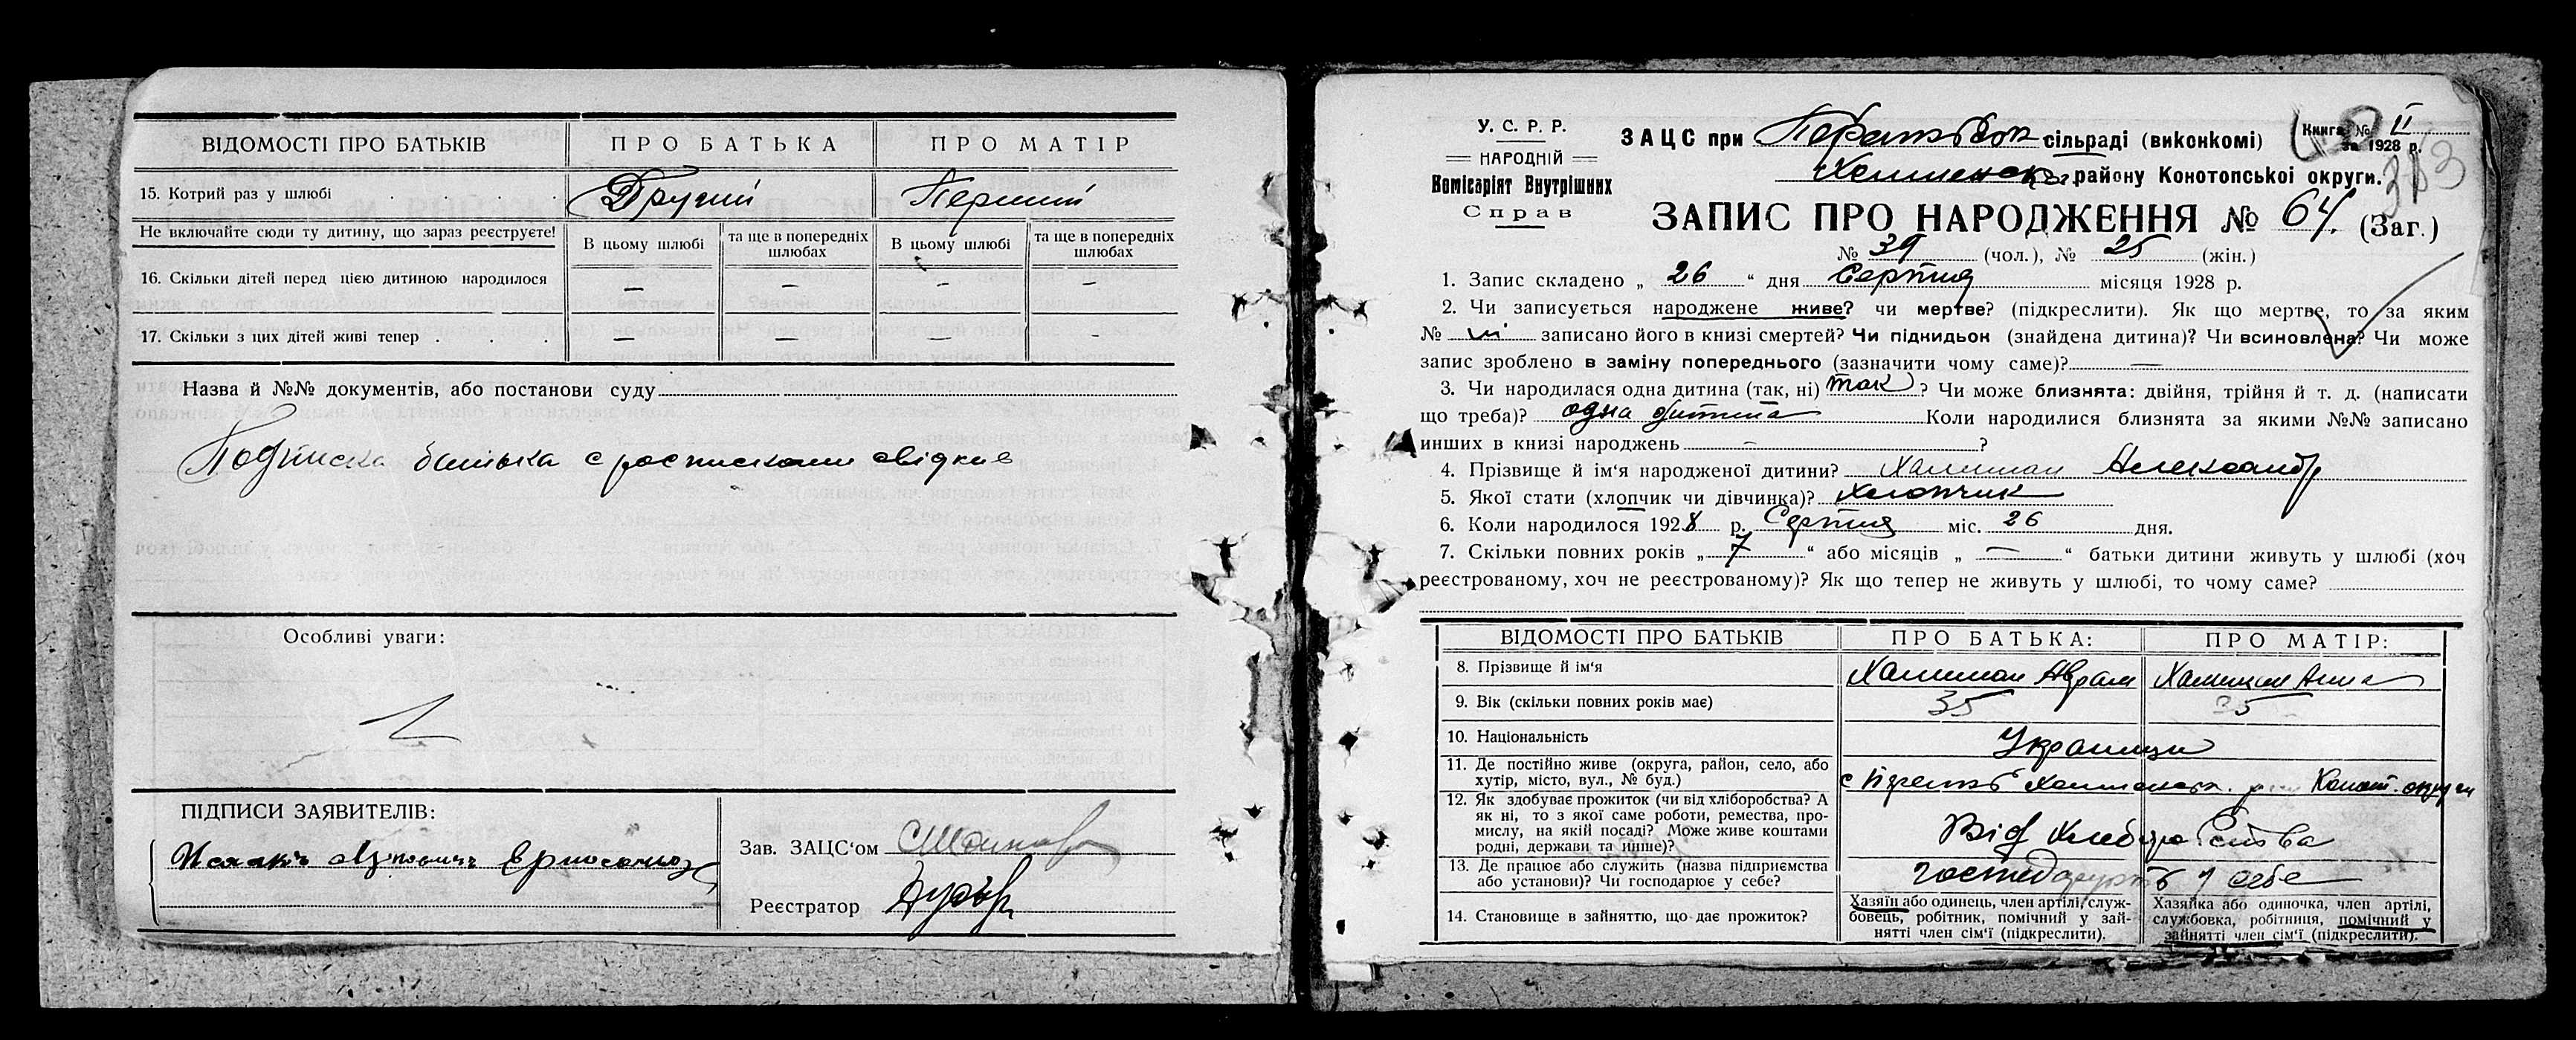 ВІДОМОСТІ ПРО БАТЬКІВ
ПРО БАТЬКА
ПРО МАТІР
15. Котрий раз у шлюбі . . . .
Другий
Перший
Не включайте сюди ту дитину, що зараз реєструєте!
В цьому шлюбі
та ще в попередніх шлюбах
В цьому шлюбі
та ще в попередніх шлюбах
16. Скільки дітей перед цією дитиною народилося
— — — —
17. Скільки з цих дітей живі тепер . . .
— — — —
Назва й №№ документів, або постанови суду
Подписка батька с росписками свідків
Особливі уваги:
ПІДПИСИ ЗАЯВИТЕЛІВ:
Зав. ЗАЦС'ом
Реєстратор
У. С. Р. Р.
НАРОДНІЙ
Комісаріят Внутрішних
Справ
ЗАЦС при сільраді (виконкомі)
Книга № II
за 1928 р.
району Конотопської округи.
313
ЗАПИС ПРО НАРОДЖЕННЯ № 64. (Заг.)
№ 39 (чол.), № 25 (жін.)
1. Запис складено „ 26 “ дня Серпня місяця 1928 р.
2. Чи записується народжене живе? чи мертве? (підкреслити). Як що мертве, то за яким
№ ні записано його в книзі смертей? Чи підкидьок (знайдена дитина)? Чи всиновлена? Чи може
запис зроблено в заміну попереднього (зазначити чому саме)? —
3. Чи народилася одна дитина (так, ні) так ? Чи може близнята: двійня, трійня й т. д. (написати
що треба)? одна дитина Коли народилися близнята за якими №№ записано
инших в книзі народжень — ?
4. Прізвище й ім'я народженої дитини? Халиман Александр
5. Якої стати (хлопчик чи дівчинка)? хлопчик
6. Коли народилося 1928 р. Серпня міс. 26 дня.
7. Скільки повних років „ 7 “ або місяців „ — “ батьки дитини живуть у шлюбі (хоч
реєстрованому, хоч не реєстрованому)? Як що тепер не живуть у шлюбі, то чому саме?
ВІДОМОСТІ ПРО БАТЬКІВ
ПРО БАТЬКА:
ПРО МАТІР:
8. Прізвище й ім'я
Халиман Аврам
Халиман Анна
9. Вік (скільки повних років має)
35
35
10. Національність
Украинци
11. Де постійно живе (округа, район, село, або
хутір, місто, вул., № буд.)
Конот. округи
12. Як здобуває прожиток (чи від хліборобства? А
як ні, то з якої саме роботи, ремества, про-
мислу, на якій посаді? Може живе коштами
родні, держави та інше)?
Від хлеборобства
13. Де працює або служить (назва підприємства
або установи)? Чи господарює у себе?
господарують у себе
14. Становище в зайняттю, що дає прожиток?
Хазяїн або одинець, член артілі, служ-
бовець, робітник, помічний у зай-
нятті член сім'ї (підкреслити).
Хазяйка або одиночка, член артілі,
службовка, робітниця, помічний у
зайнятті член сім'ї (підкреслити).